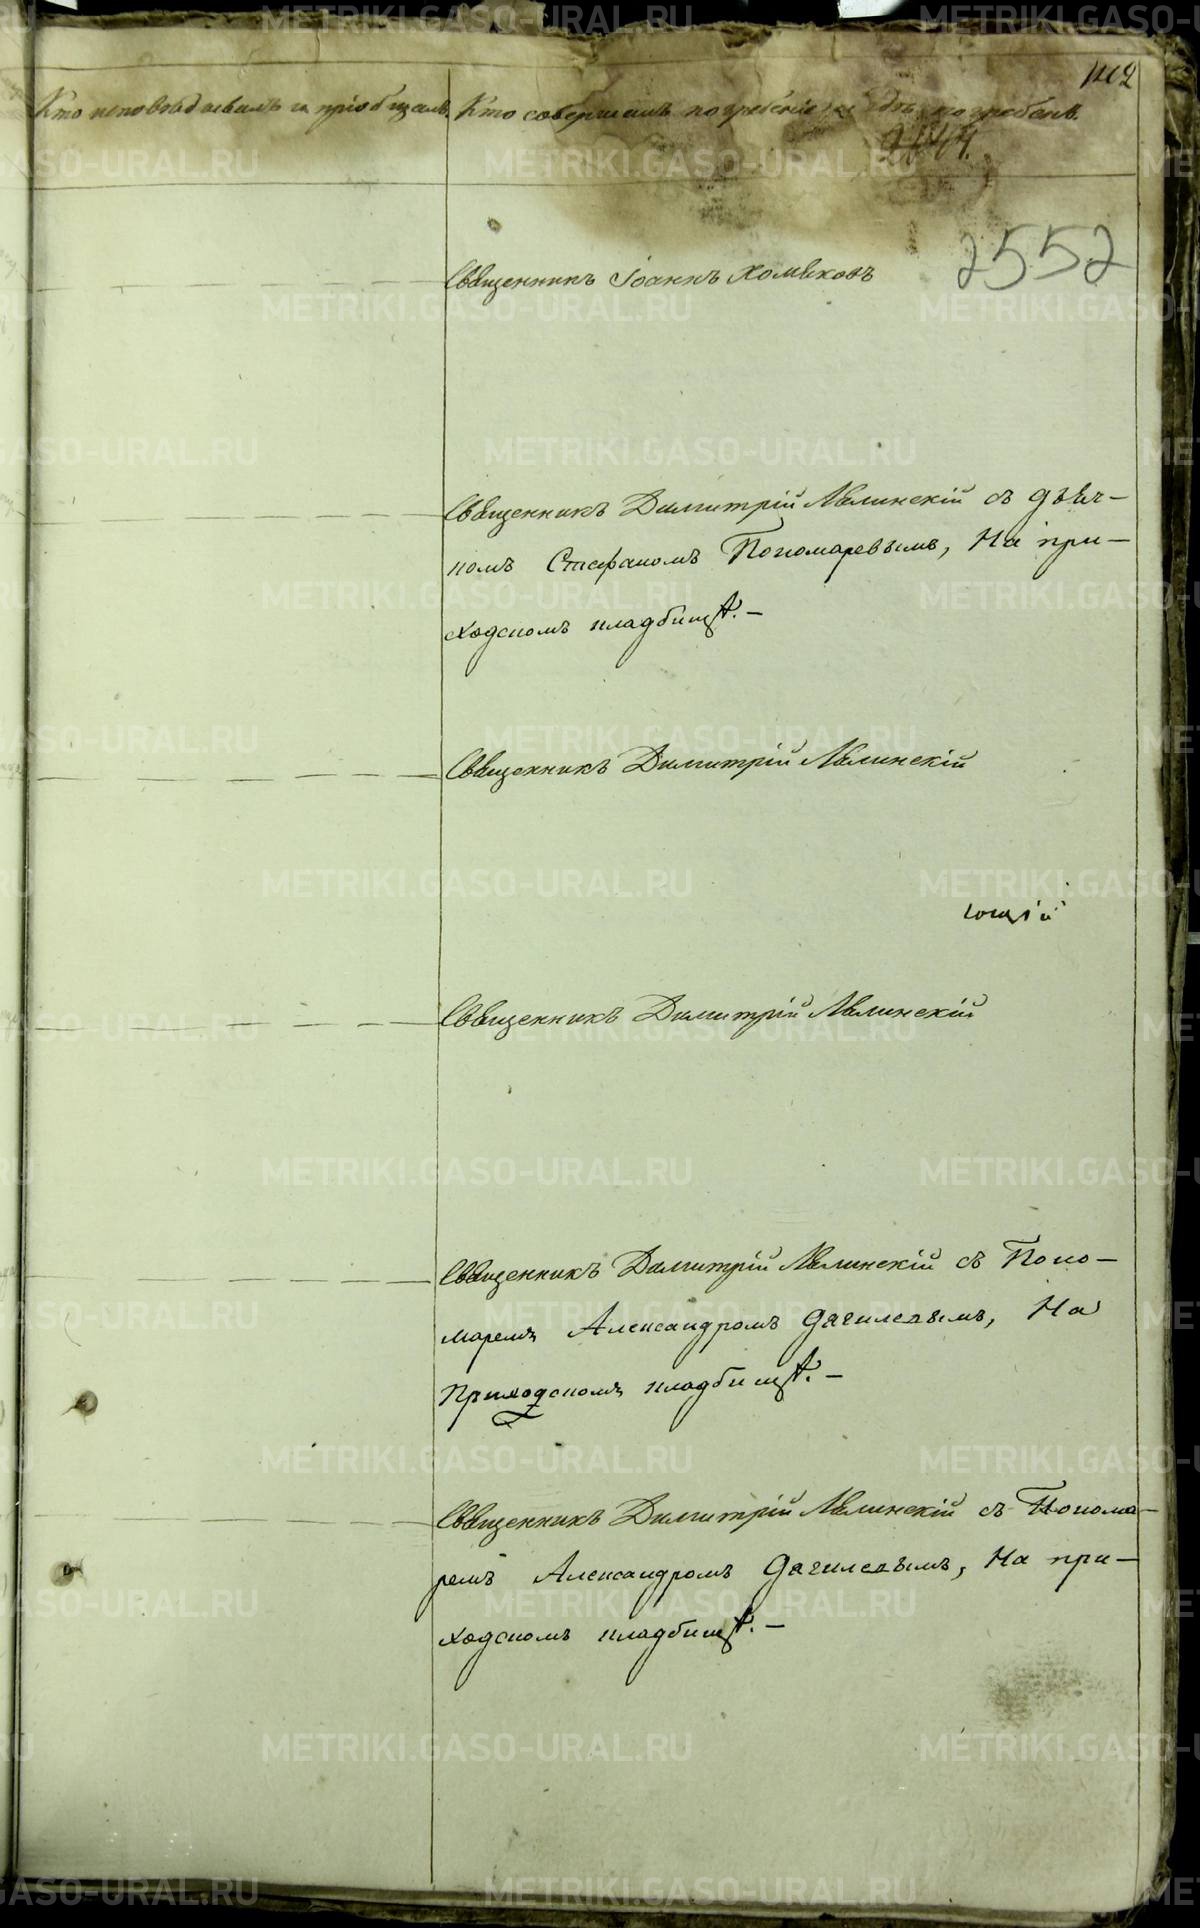 Кто исповѣдывалъ и пріобщалъ.
Кто совершалъ погребеніе и гдѣ погребены.
2552
Священникъ Іоаннъ Хомяковъ
Священникъ Димитрій Мялинскій съ дьяч-
комъ Стефаномъ Пономаревымъ, На при-
ходскомъ кладбищѣ.-
Священникъ Димитрій Мялинскій
ющій
Священникъ Димитрій Мялинскій
Священникъ Димитрій Мялинскій съ Поно-
маремъ Александромъ Дягилевымъ, На
Приходскомъ кладбищѣ.-
Священникъ Димитрій Мялинскій съ Понома-
ремъ Александромъ Дягилевымъ, На при-
ходскомъ кладбищѣ.-
METRIKI.GASO-URAL.RU